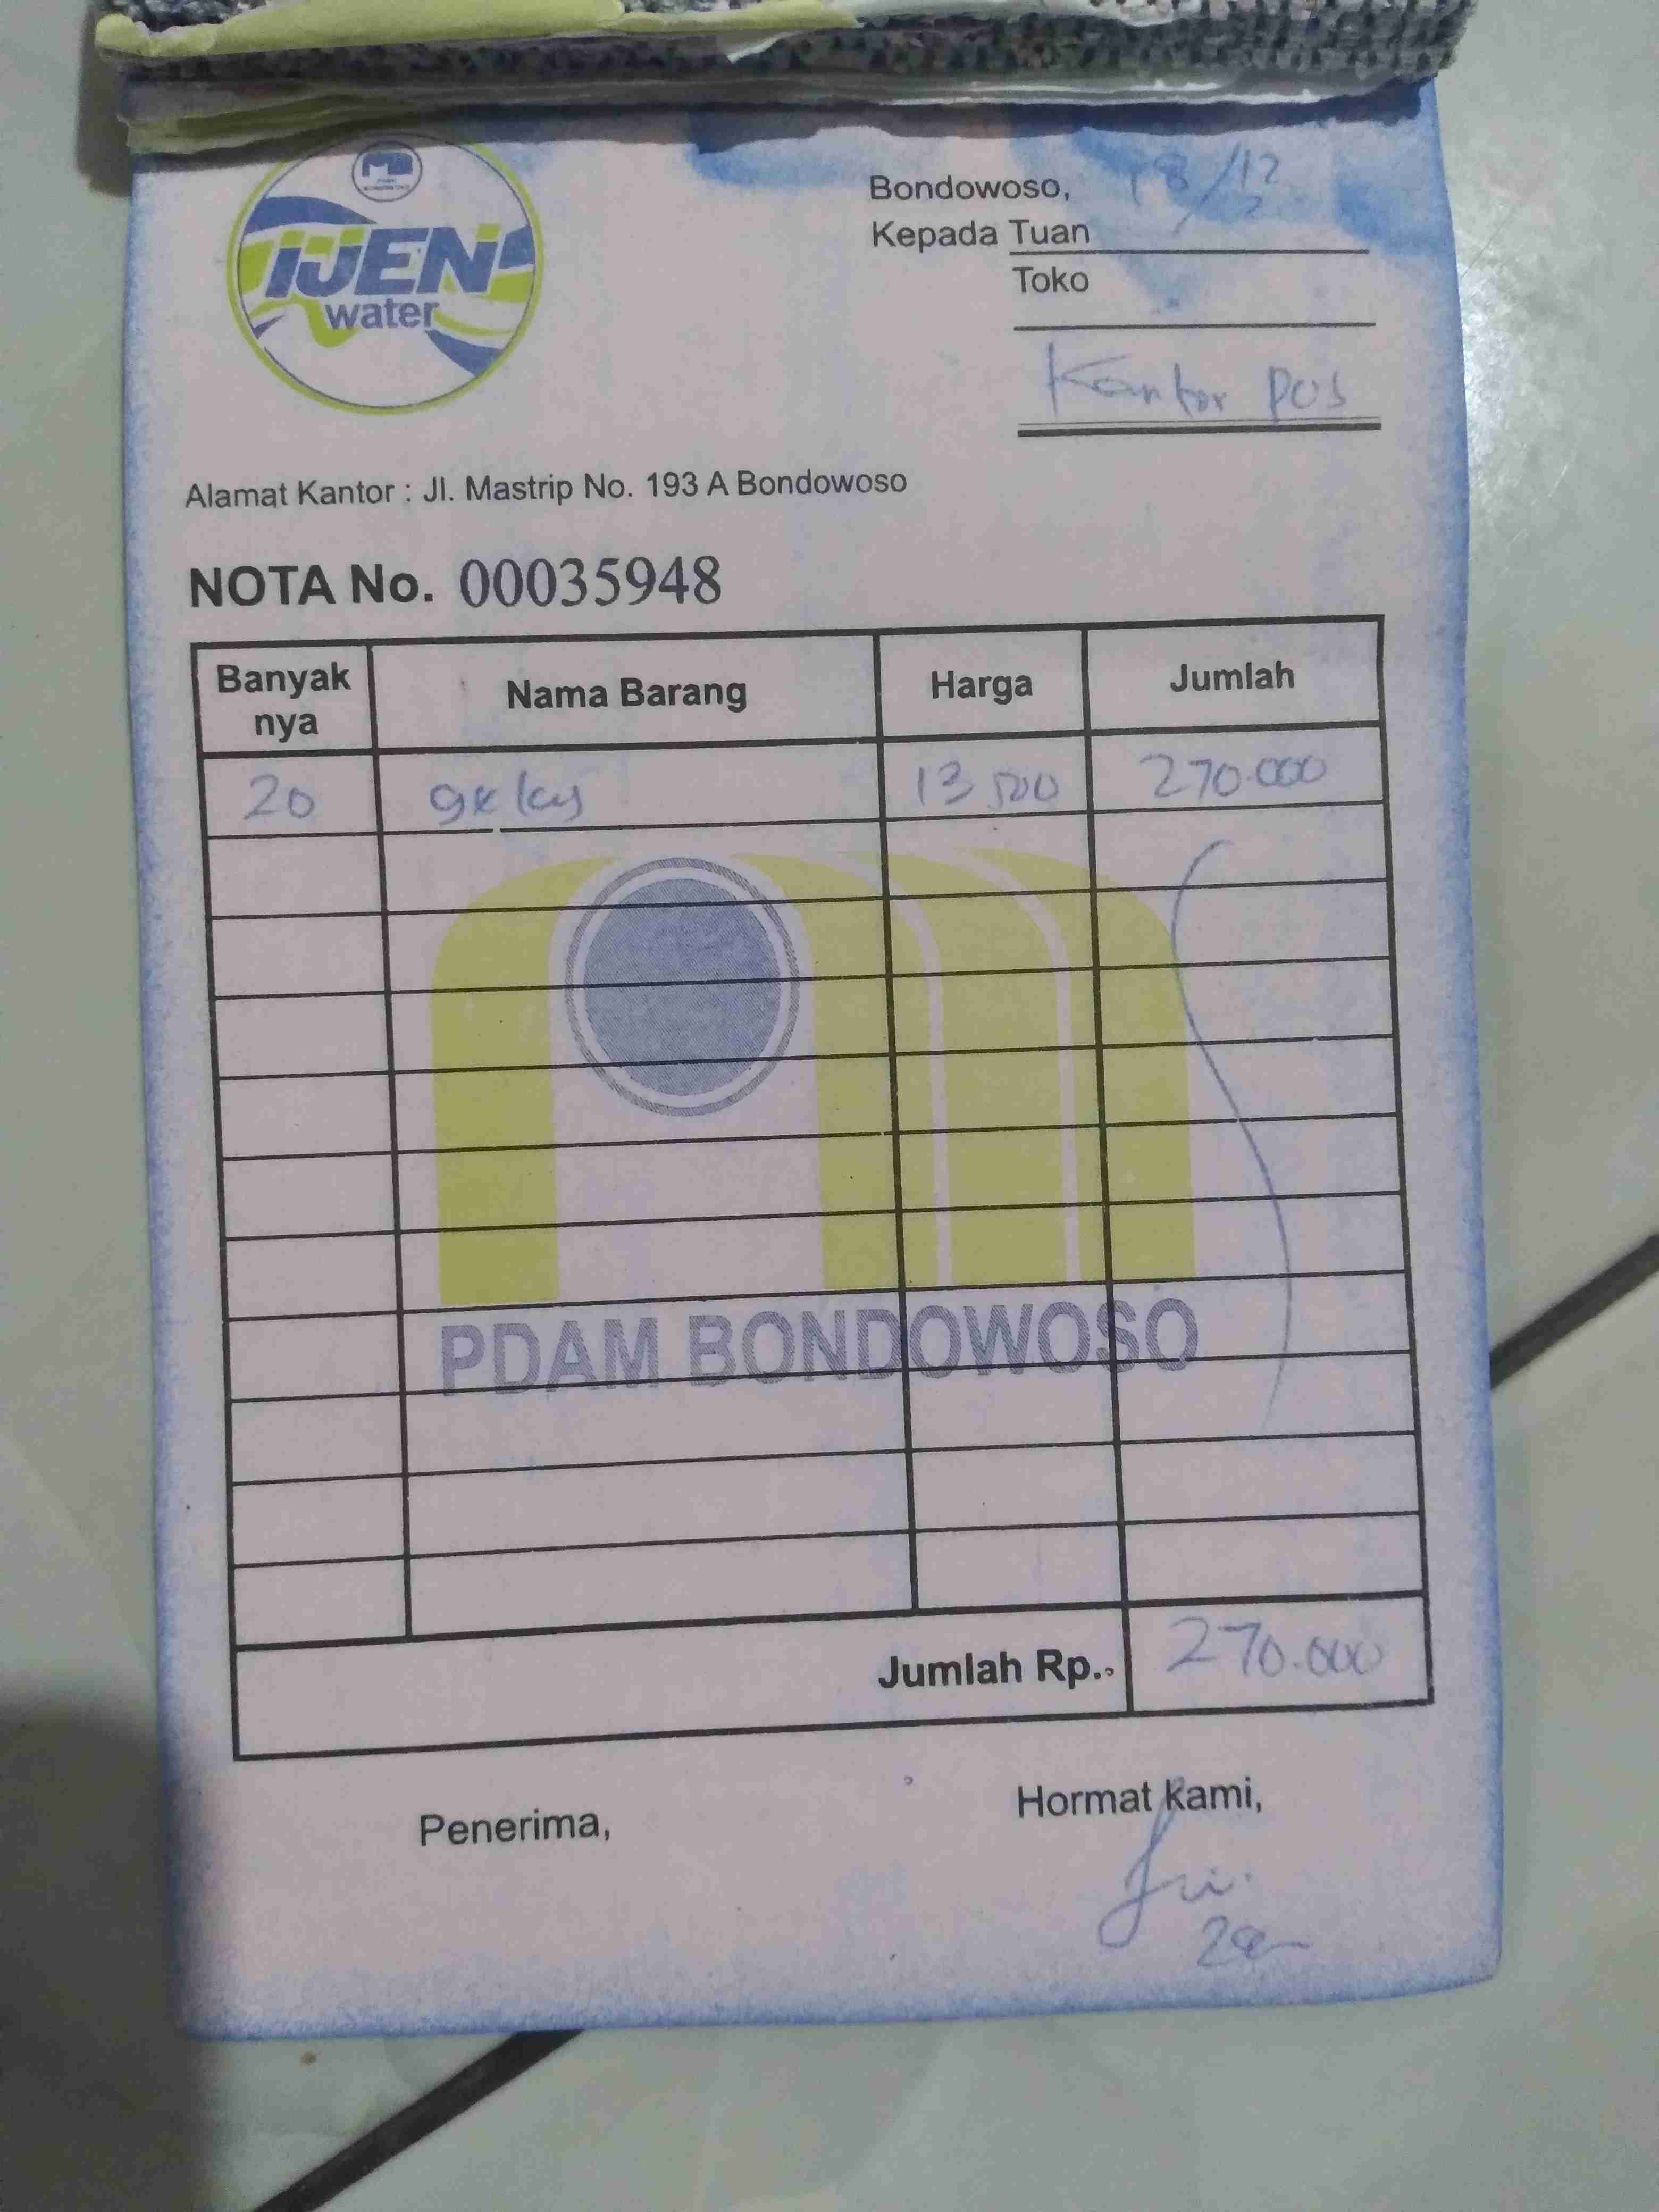 IJEN
water
Bondowoso, 18/12
Kepada Tuan
Toko
Kantor pos
Alamat Kantor : Jl. Mastrip No. 193 A Bondowoso
NOTA No. 00035948
Banyak nya Nama Barang Harga Jumlah
20 gelas 13.500 270.000
PDAM BONDOWOSO
Jumlah Rp. 270.000
Penerima, Hormat Kami,